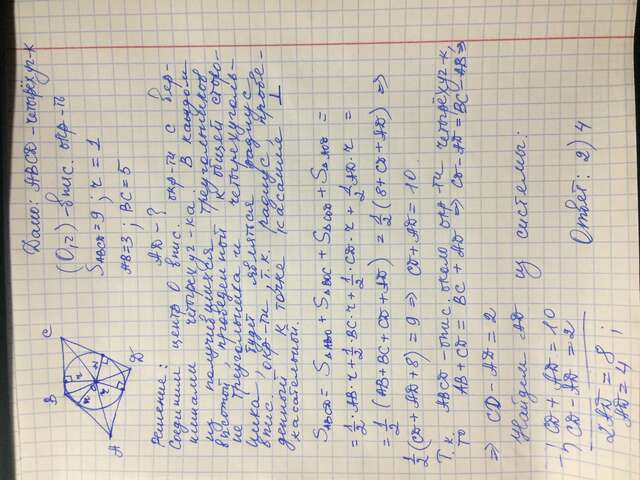 Дано: ABCD - четырёхуг-к
(O,r) - впис. окр-ть
S_ABCD = 9 ; r = 1
AB=3 ; BC=5
AD - ?
B
C
A
D
O
r
r
r
r
Решение:
Соединим центр O впис. окр-ти с вер-
шинами четырёхуг-ка. В каждом
из получившихся треугольников
высотой, проведенной к общей сторо-
не треугольника и четырехуголь-
ника, будет являться радиус
впис. окр-ти, т.к. радиус, прове-
денный к точке касания ⊥
касательной.
S_ABCD = S_ΔABO + S_ΔBOC + S_ΔCOD + S_ΔAOD =
= 1/2·AB·r + 1/2·BC·r + 1/2·CD·r + 1/2 AD·r =
= 1/2 (AB+BC+CD+AD) = 1/2 (8+CD+AD) ⇒
1/2 (CD+AD+8) = 9 ⇒ CD+AD = 10.
Т.к. ABCD - опис. около окр-ти четырёхуг-к,
то AB+CD = BC+AD ⇒ CD-AD = BC-AB ⇒
⇒ CD-AD = 2
Найдем AD из системы:
- { CD + AD = 10
CD - AD = 2
2AD = 8 ;
AD = 4 ;
Ответ: 2) 4